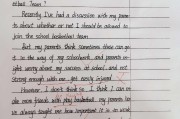 ball Team?
Recently I've had a discussion with my paren
ts about whether or not I should be allowed to
join the school basketball team.
But my parents think sometimes these can ge
t in the way of my schoolwork and parents
might worry about my success at school, and not
strong enough with me get easily
However, I don't think so. I think I can m
ake more friends with play basketball, my parents ha
ve always taught me how important it is to work